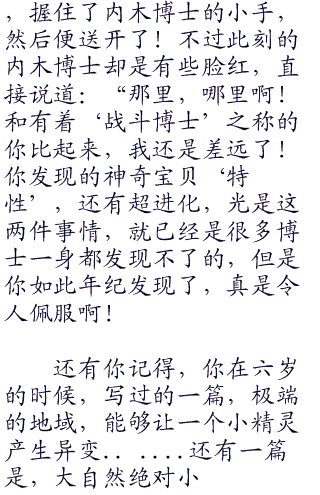 ，握住了内木博士的小手，
然后便送开了！不过此刻的
内木博士却是有些脸红，直
接说道：“那里，哪里啊！
和有着‘战斗博士’之称的
你比起来，我还是差远了！
你发现的神奇宝贝‘特
性’，还有超进化，光是这
两件事情，就已经是很多博
士一身都发现不了的，但是
你如此年纪发现了，真是令
人佩服啊！
还有你记得，你在六岁
的时候，写过的一篇，极端
的地域，能够让一个小精灵
产生异变．．．．．．还有一篇
是，大自然绝对小